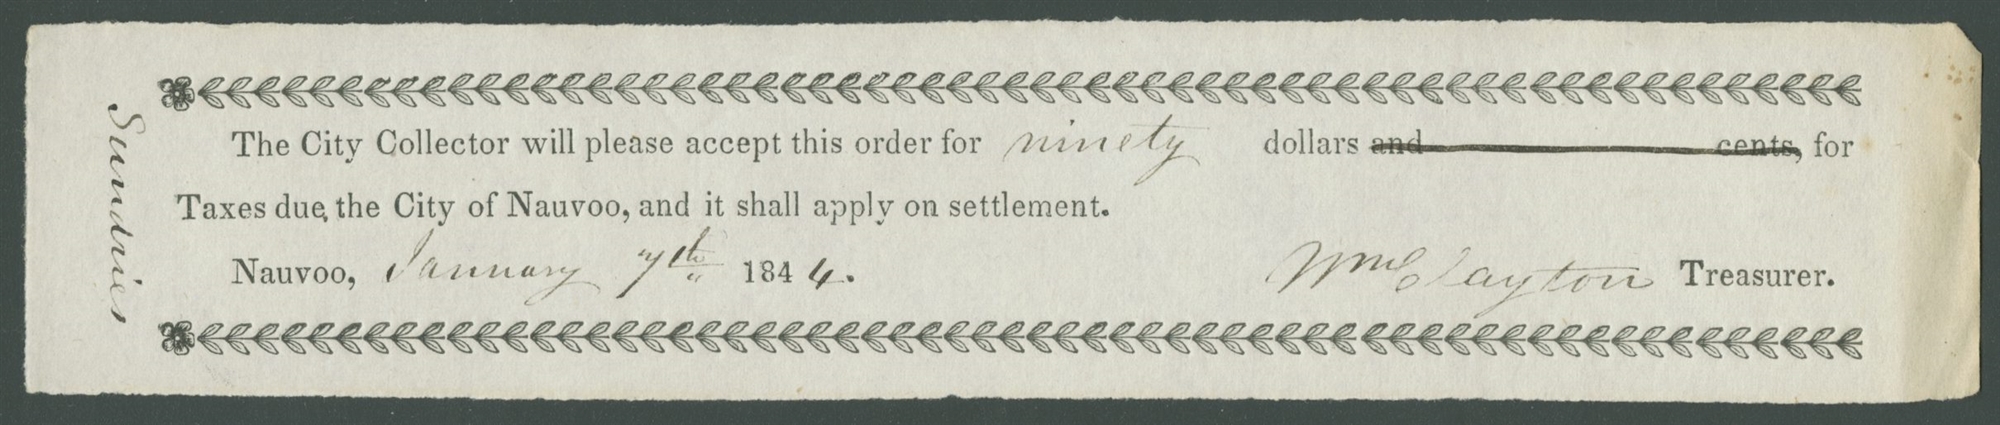 Sundries
The City Collector will please accept this order for ninety dollars and cents, for
Taxes due, the City of Nauvoo, and it shall apply on settlement.
Nauvoo, January 7th 1844. Wm Clayton Treasurer.